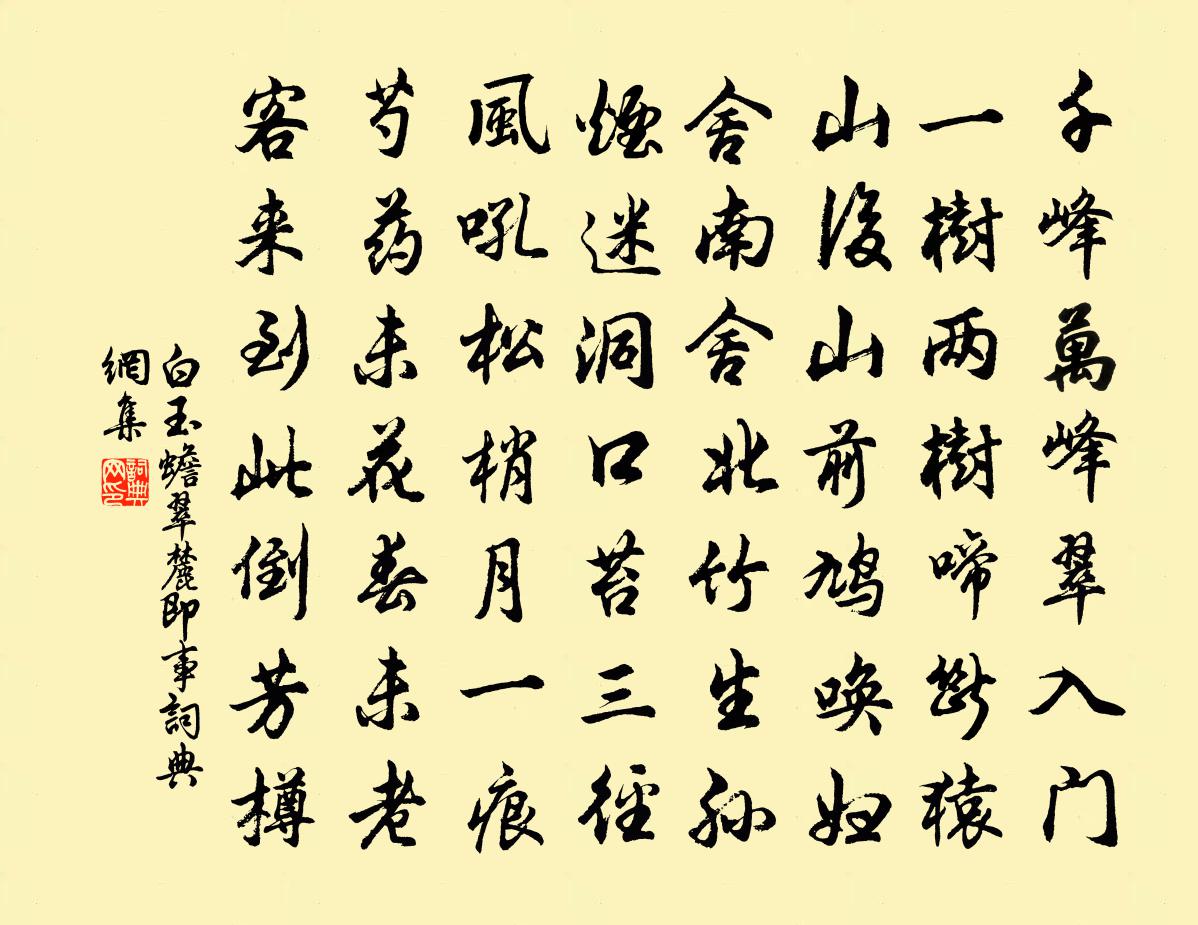 千峰萬峰翠入门
一樹两樹啼斷猿
山後山前鳩喚妇
舍南舍北竹生孙
煙迷洞口苔三徑
風吼松梢月一痕
芍药未花春未老
客来到此倒芳樽
白玉蟾翠麓即事詞典
網集
詞典
网印